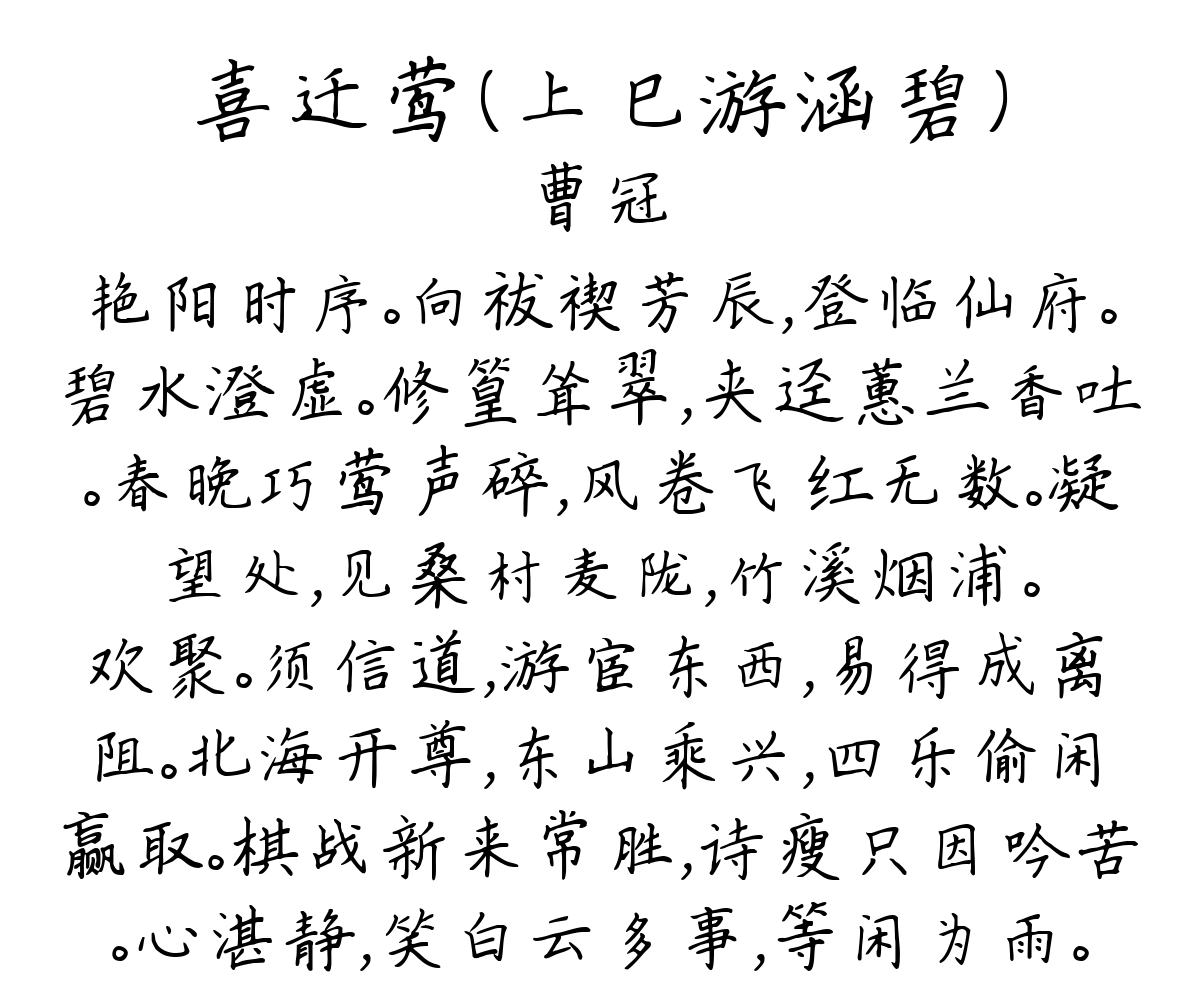 喜迁莺(上巳游涵碧)
曹冠
艳阳时序。向祓禊芳辰,登临仙府。
碧水澄虚。修篁耸翠,夹迳蕙兰香吐
。春晚巧莺声碎,风卷飞红无数。凝
望处,见桑村麦陇,竹溪烟浦。
欢聚。须信道,游宦东西,易得成离
阻。北海开尊,东山乘兴,四乐偷闲
赢取。棋战新来常胜,诗瘦只因吟苦
。心湛静,笑白云多事,等闲为雨。